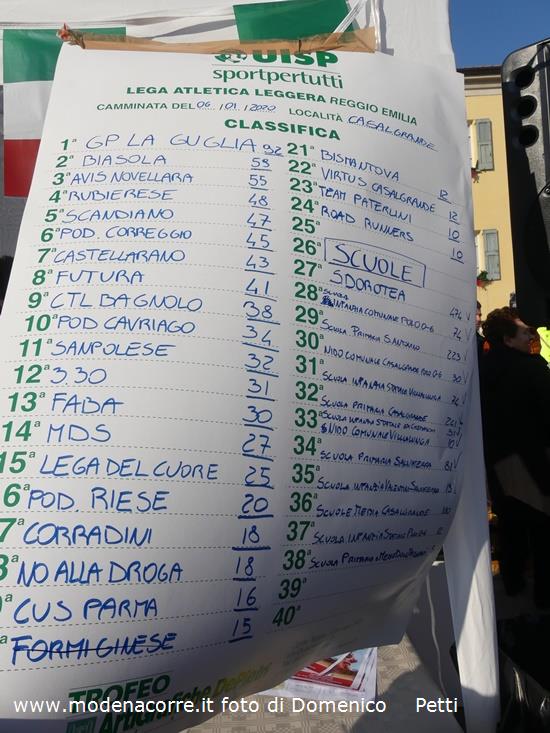 UISP
sportpertutti
LEGA ATLETICA LEGGERA REGGIO EMILIA
CAMMINATA DEL 06/01/2020 LOCALITÀ CASALGRANDE
CLASSIFICA
1ª GP LA GUGLIA 92
2ª BIASOLA 59
3ª AVIS NOVELLARA 55
4ª RUBIERESE 48
5ª SCANDIANO 47
6ª POD. CORREGGIO 45
7ª CASTELLARANO 43
8ª FUTURA 41
9ª CTL BAGNOLO 38
10ª POD CAVRIAGO 34
11ª SANPOLESE 32
12ª 3.30 31
13ª FABA 30
14ª MDS 27
15ª LEGA DEL CUORE 25
6ª POD. RIESE 20
7ª CORRADINI 18
8ª NO ALLA DROGA 18
ª CUS PARMA 16
ª FORMIGINESE 15
21ª BISMANTOVA 12
22ª VIRTUS CASALGRANDE 12
23ª TEAM PATERLINI 10
24ª ROAD RUNNERS 10
25ª
26ª SCUOLE
27ª S DOROTEA 474
28ª SCUOLA INFANZIA COMUNALE POLO 0-6 74
29ª SCUOLA PRIMARIA S ANTONINO 223
30ª NIDO COMUNALE CASALGRANDE POLO 0-6 30
31ª SCUOLA INFANZIA STATALE VILLALUNGA
32ª SCUOLA PRIMARIA CASALGRANDE
33ª SCUOLA INFANZIA STATALE
NIDO COMUNALE VILLALUNGA
34ª SCUOLA PRIMARIA SALVATERRA
35ª SCUOLA INFANZIA VALENTINI SALVATERRA
36ª SCUOLE MEDIA CASALGRANDE
37ª SCUOLA INFANZIA STATALE
38ª SCUOLA PRIMARIA
39ª
40ª
TROFEO
Artigrafiche DePietri
www.modenacorre.it foto di Domenico Petti